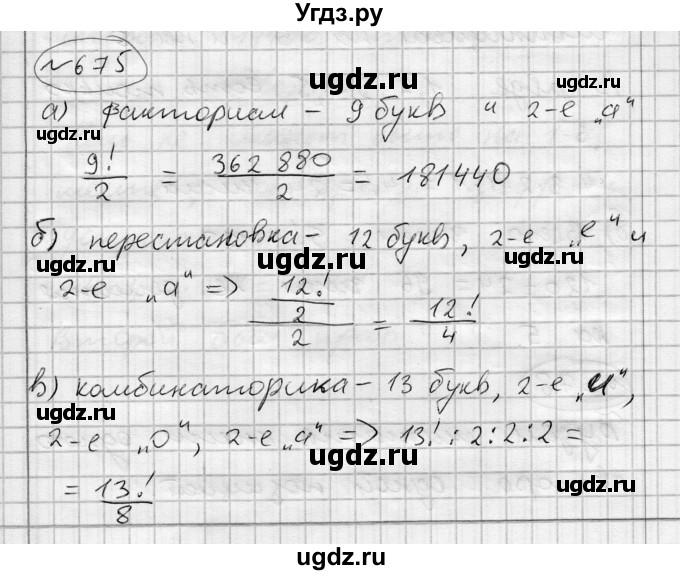 Угдз.ру
№675
ugdz.ru
а) факториал - 9 букв и 2-е „а“
ugdz.ru ugdz.ru
9!/2 = 362 880/2 = 181440
ugdz.ru
б) перестановка - 12 букв, 2-е „е“ и
ugdz.ru ugdz.ru ugdz.ru
2-е „а“ => (12!/2)/2 = 12!/4
ugdz.ru
в) комбинаторика - 13 букв, 2-е „и“,
ugdz.ru ugdz.ru
2-е „о“, 2-е „а“ => 13! : 2 : 2 : 2 =
ugdz.ru
= 13!/8
ugdz.ru ugdz.ru
ugdz.ru